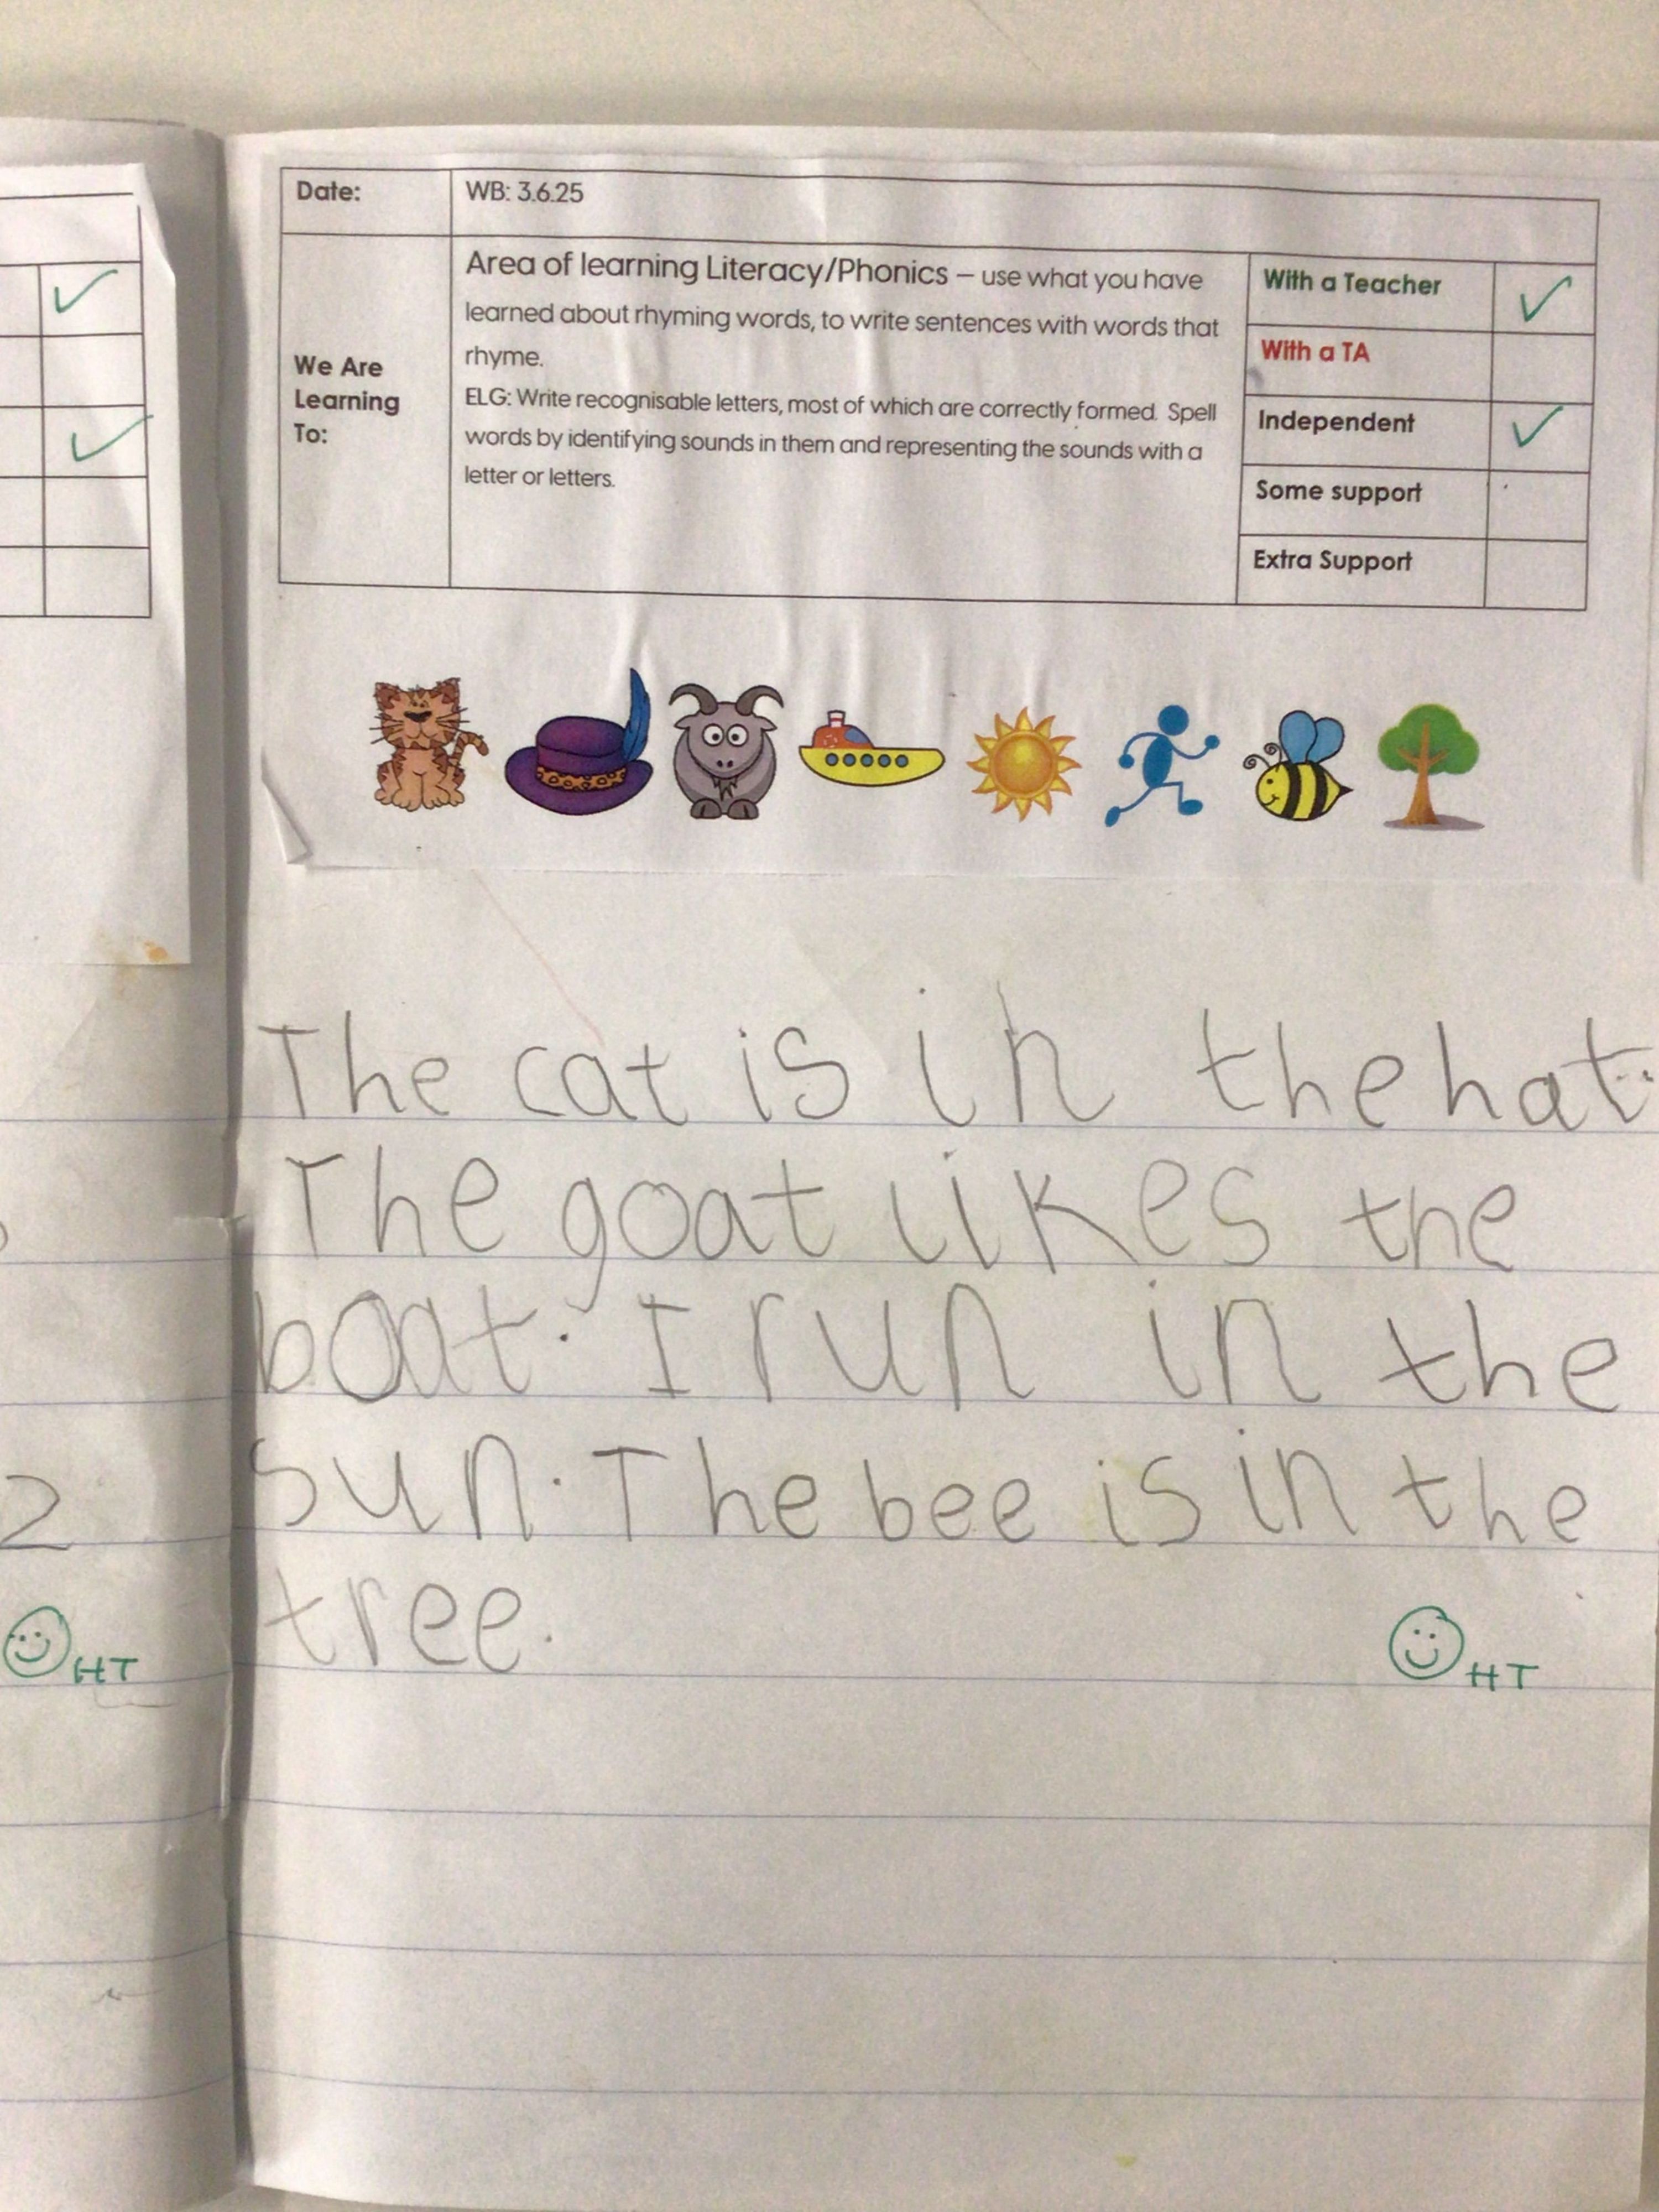 Date: WB: 3.6.25
We Are
Learning
To:
Area of learning Literacy/Phonics – use what you have
learned about rhyming words, to write sentences with words that
rhyme.
ELG: Write recognisable letters, most of which are correctly formed. Spell
words by identifying sounds in them and representing the sounds with a
letter or letters.
With a Teacher ✓
With a TA
Independent ✓
Some support
Extra Support
The cat is in the hat.
The goat likes the
boat. I run in the
sun. The bee is in the
tree.
HT
2
HT